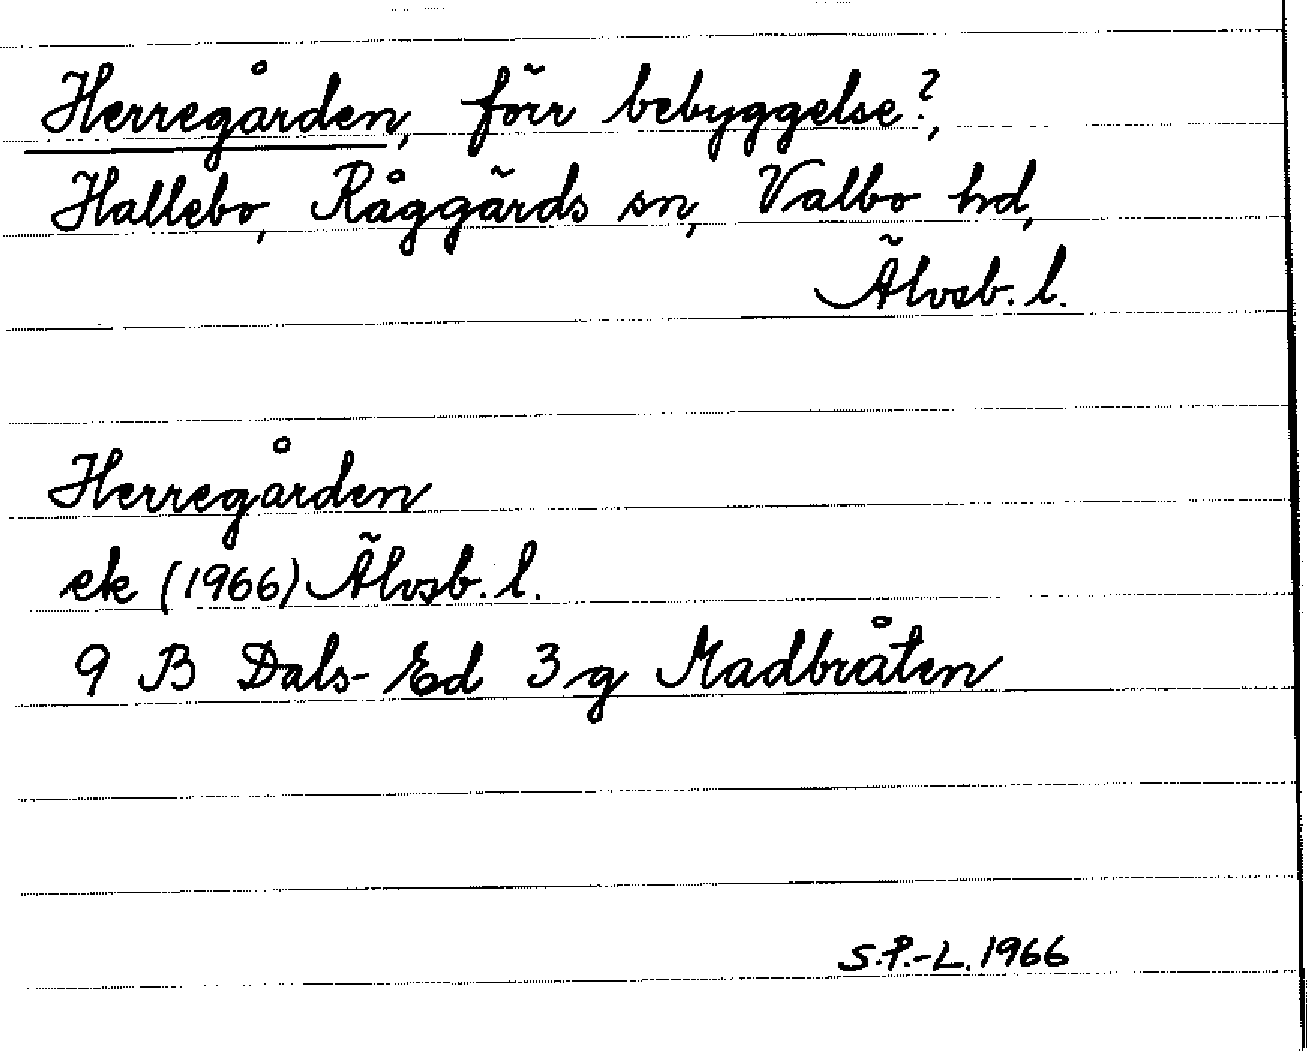 Herregården, förr bebyggelse?,
Hallebo, Råggärds sn, Valbo hd,
Älvsb. l.
Herregården
ek (1966) Älvsb. l.
9 B Dals-Ed 3 g Madbråten
S.P.-L. 1966